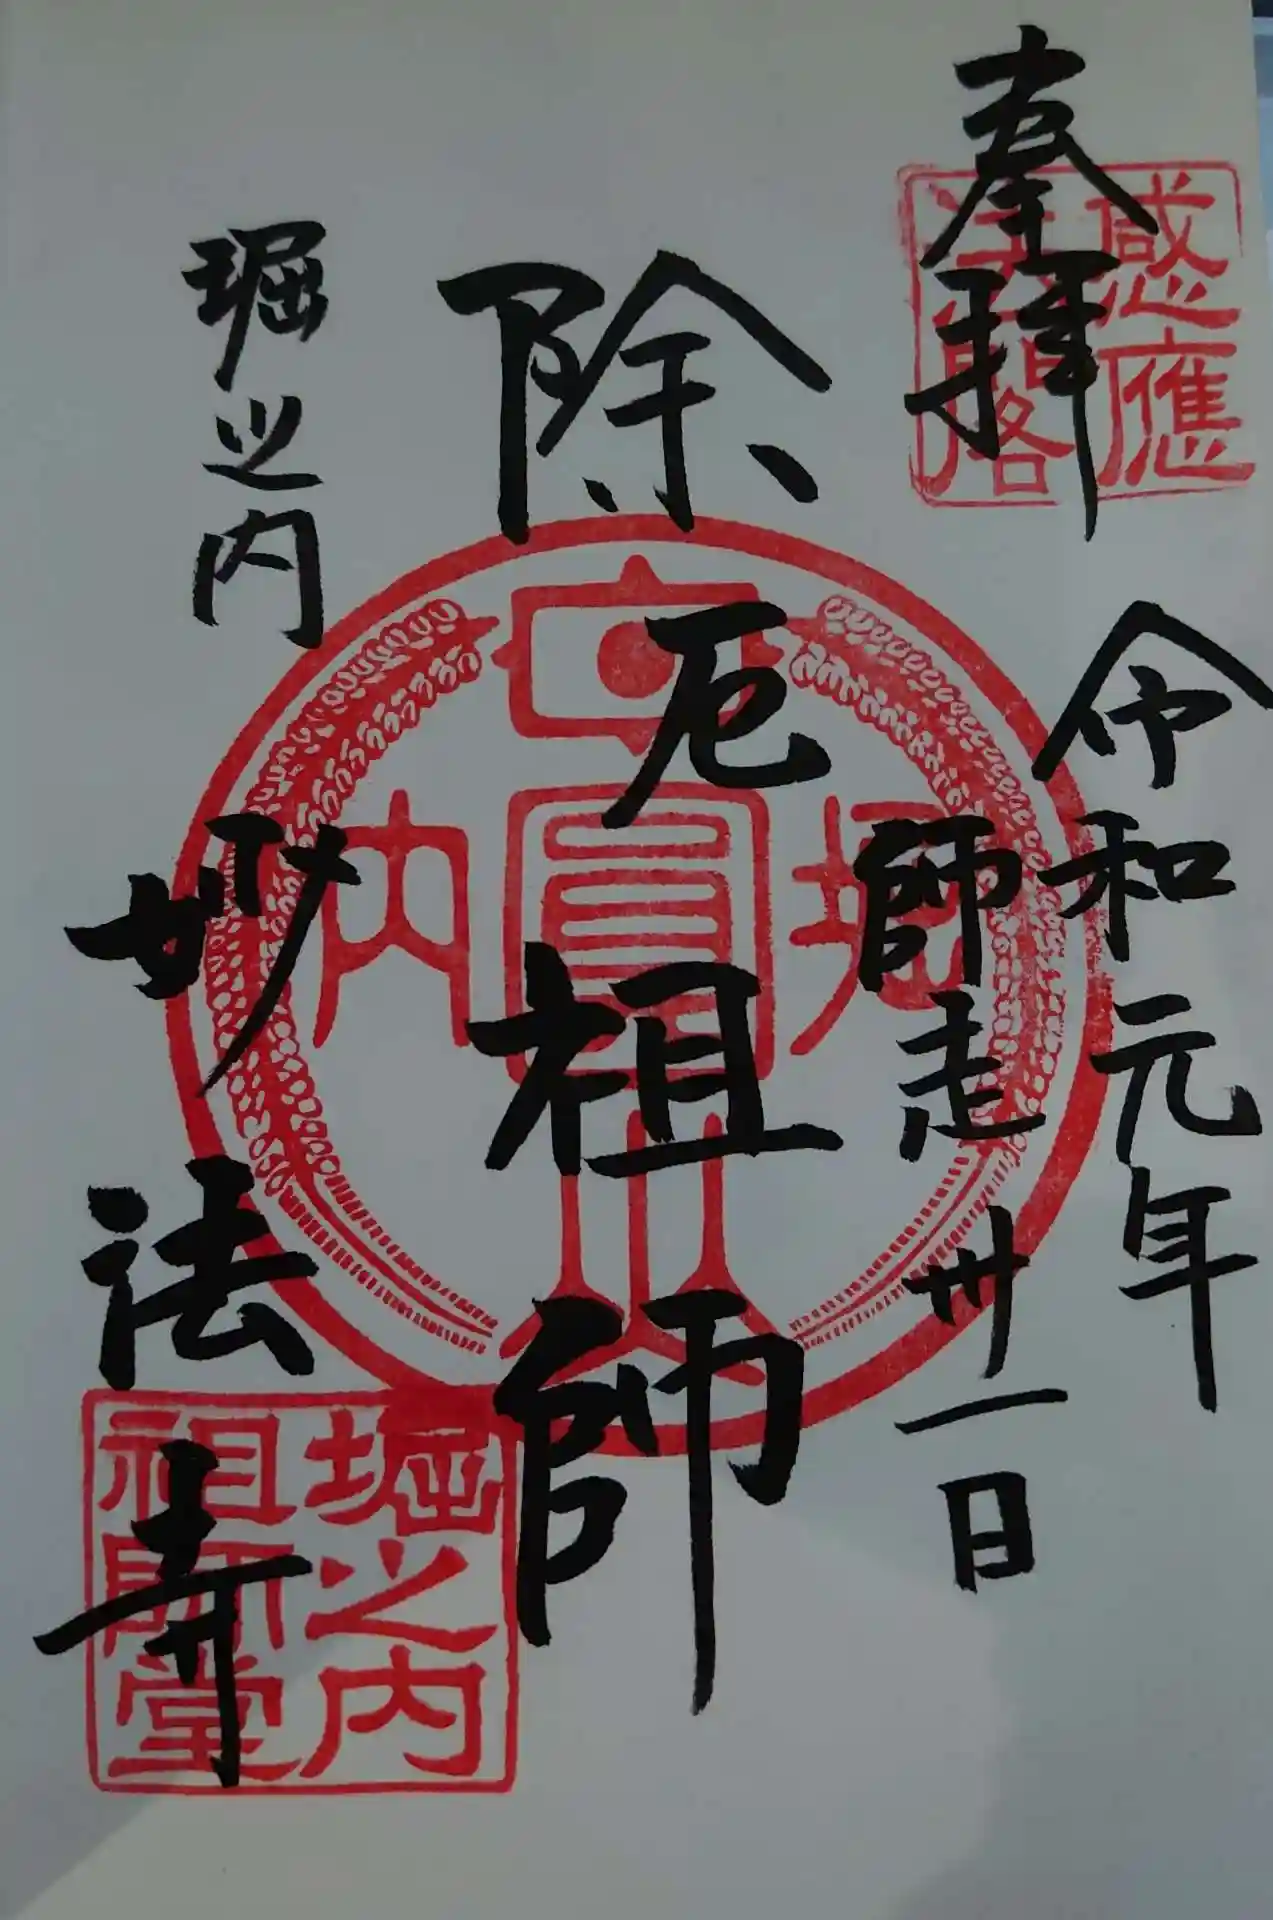 奉拝
感應
令和元年
師走卅一日
除厄祖師
日圓山
堀
内
堀之内
妙法寺
堀之内
祖師堂